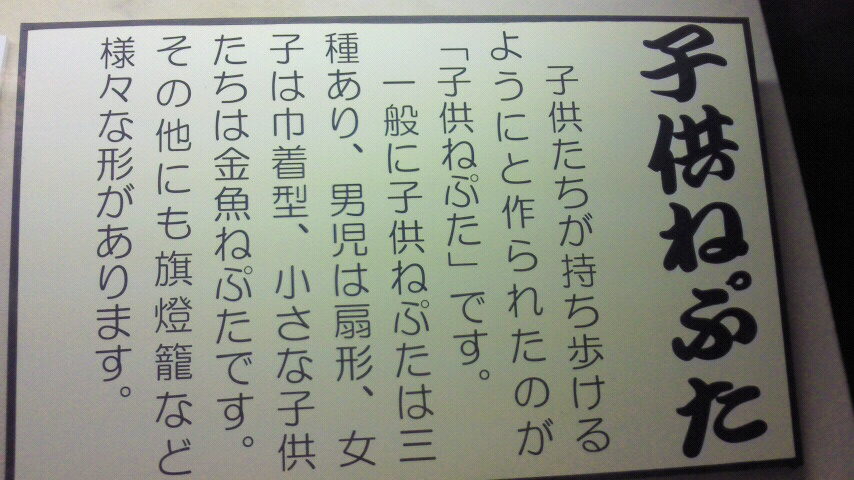 子供ねぷた
子供たちが持ち歩ける
ようにと作られたのが
「子供ねぷた」です。
一般に子供ねぷたは三
種あり、男児は扇形、女
子は巾着型、小さな子供
たちは金魚ねぷたです。
その他にも旗燈籠など
様々な形があります。